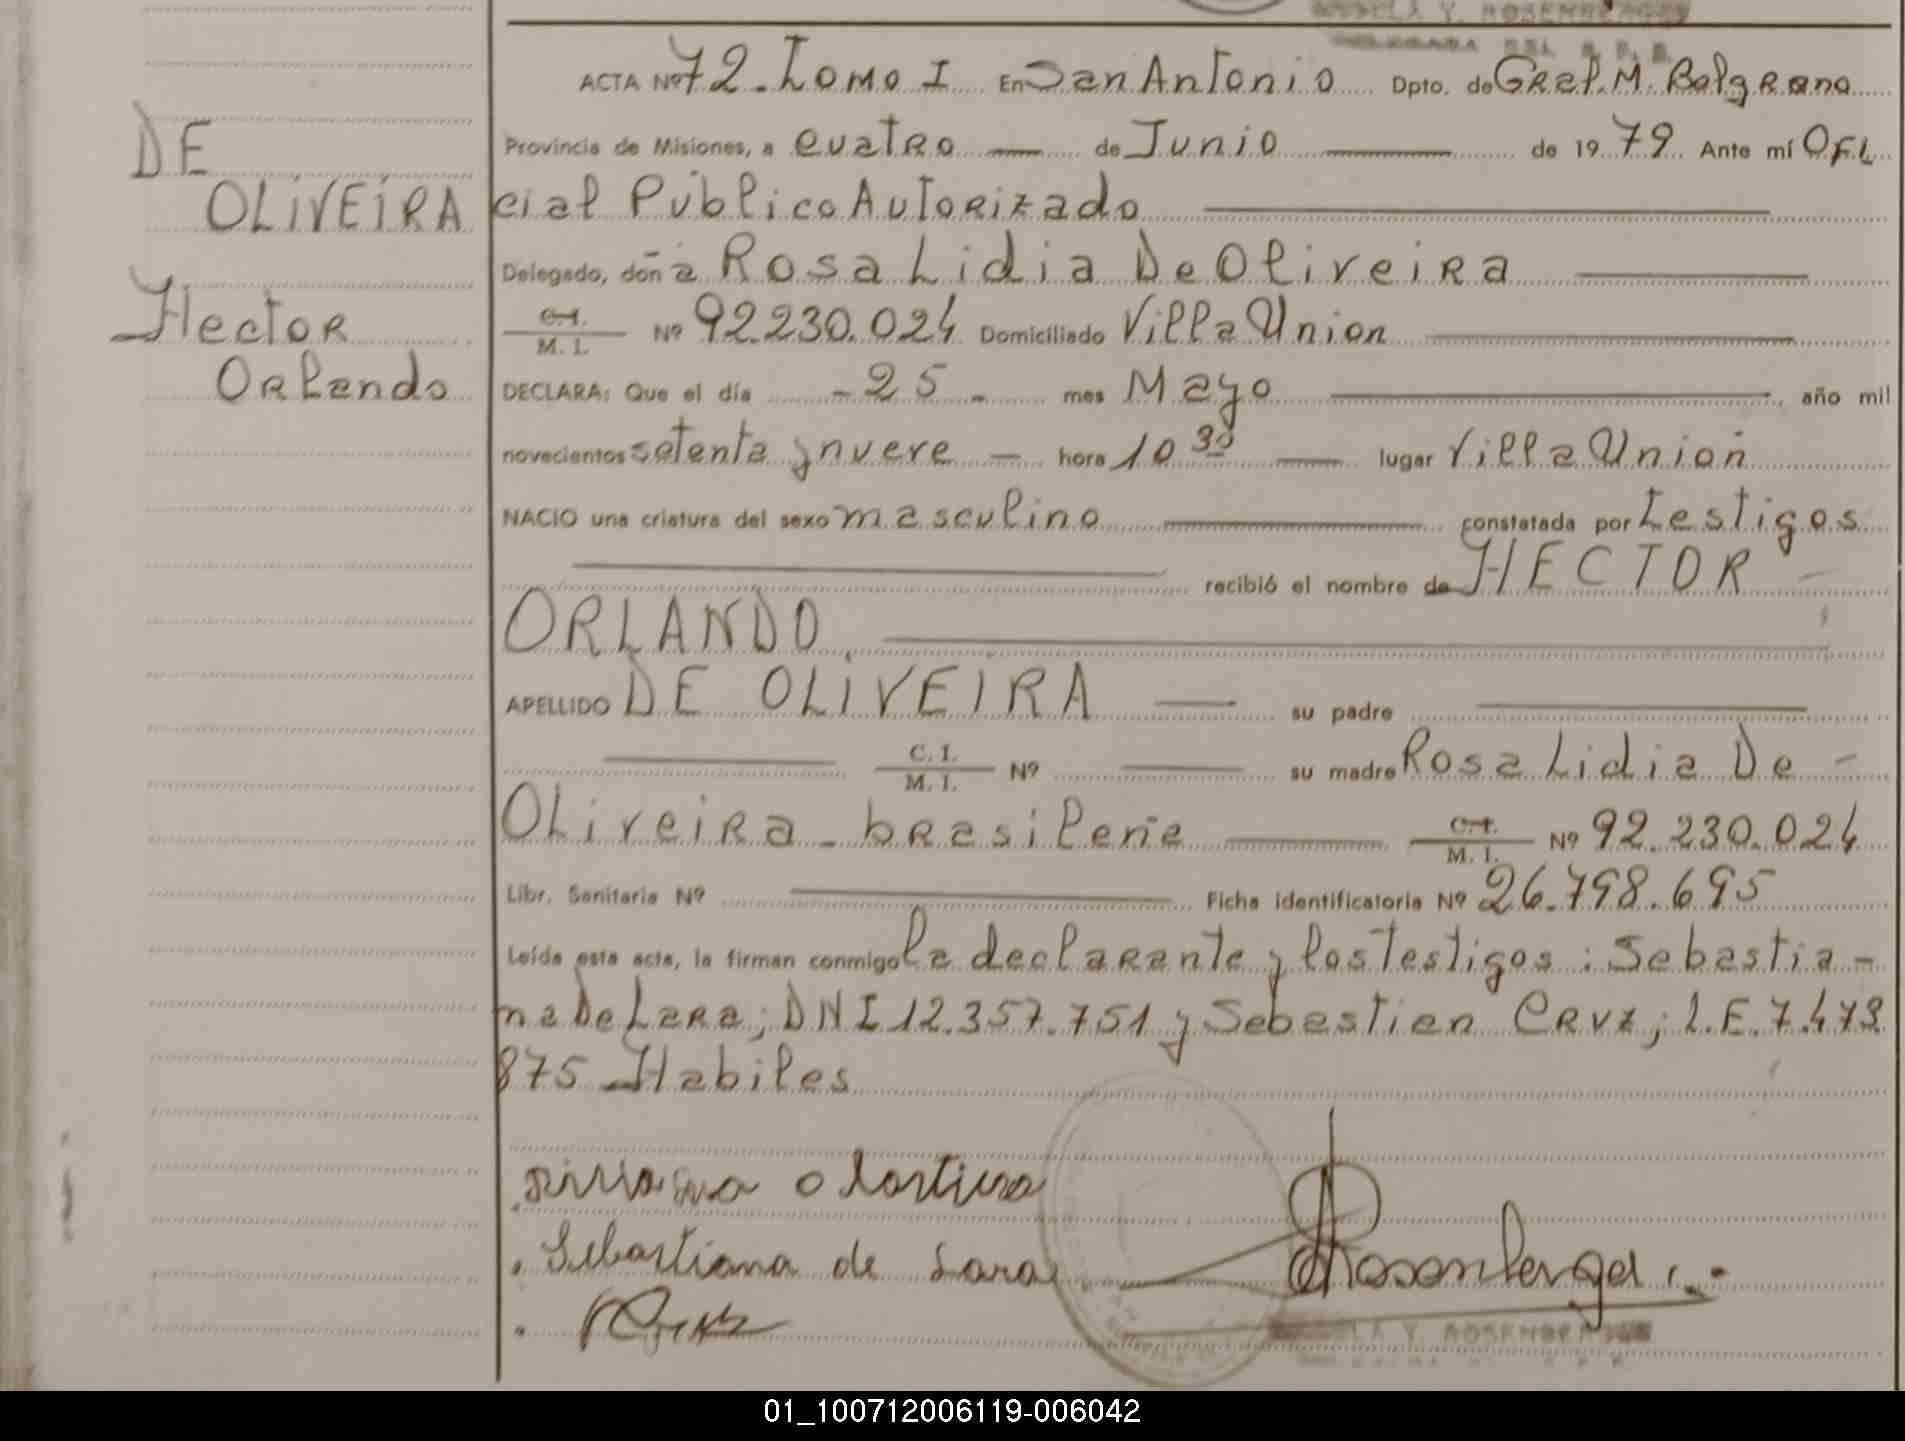 DE
OLIVEIRA
Hector
Orlando
ACTA Nº 72. Tomo I En San Antonio Dpto. de Gral. M. Belgrano
Provincia de Misiones, a cuatro de Junio de 1979 Ante mí Ofi
cial Público Autorizado
Delegado, doña Rosa Lidia De Oliveira
C.I. / M. I. Nº 92.230.024 Domiciliado Villa Union
DECLARA: Que el día - 25 - mes Mayo año mil
novecientos setenta y nueve - hora 10 30 lugar Villa Unión
NACIO una criatura del sexo masculino constatada por testigos
recibió el nombre de HECTOR
ORLANDO.
APELLIDO DE OLIVEIRA su padre
C. I. / M. I. Nº su madre Rosa Lidia De -
Oliveira - brasileña C.I. / M. I. Nº 92.230.024
Libr. Sanitaria Nº Ficha identificatoria Nº 26.798.695
Leída esta acta, la firman conmigo la declarante y los testigos: Sebastia-
na De Lara; DNI 12.357.751 y Sebastian Cruz; L.E. 7.473
875 Habiles
Sebastiana de Lara
Y. ROSEMBERGER
01_100712006119-006042